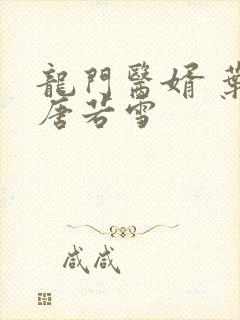 龍門醫婿 葉
唐若雪
咸咸